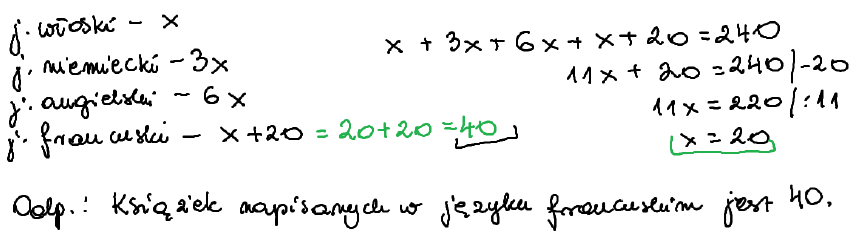 j. włoski - x
x + 3x + 6x + x + 20 = 240
j. niemiecki - 3x
11x + 20 = 240 |-20
j. angielski - 6x
11x = 220 |:11
j. francuski - x+20 = 20+20 = 40
x = 20
Odp.: Książek napisanych w języku francuskim jest 40.